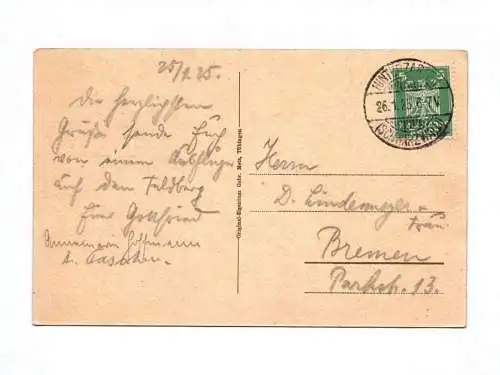 25/1.25.
Die herzlichsten
Grüße sende Euch
von einem
auf den Feldberg
Euer Gottfried
Annemarie Hoffmann
Original-Eigentum Gebr. Metz, Tübingen
HINTERZARTEN
26.1. 6-7N
(SCHWARZWALD)
5 5
Herrn
D. Lindemeyer +
Frau.
Bremen
Parkstr. 13.